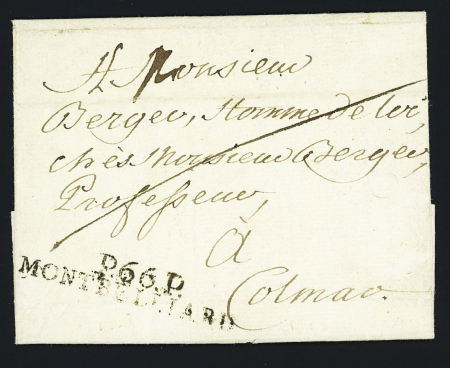 A Monsieur
Berger, Homme de loi,
chès Monsieur Berger,
Professeur,
à
Colmar.
P.66.P.
MONTBELLIARD